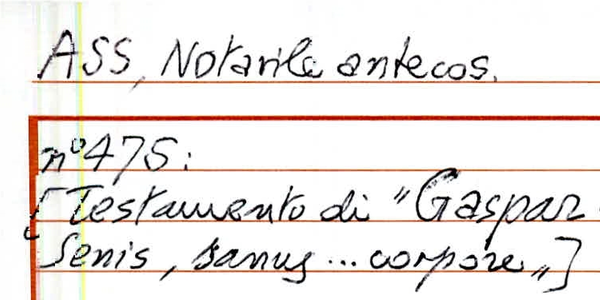 ASS, Notarile antecos.
n° 475:
[Testamento di "Gaspar
Senis, sanus ... corpore„]